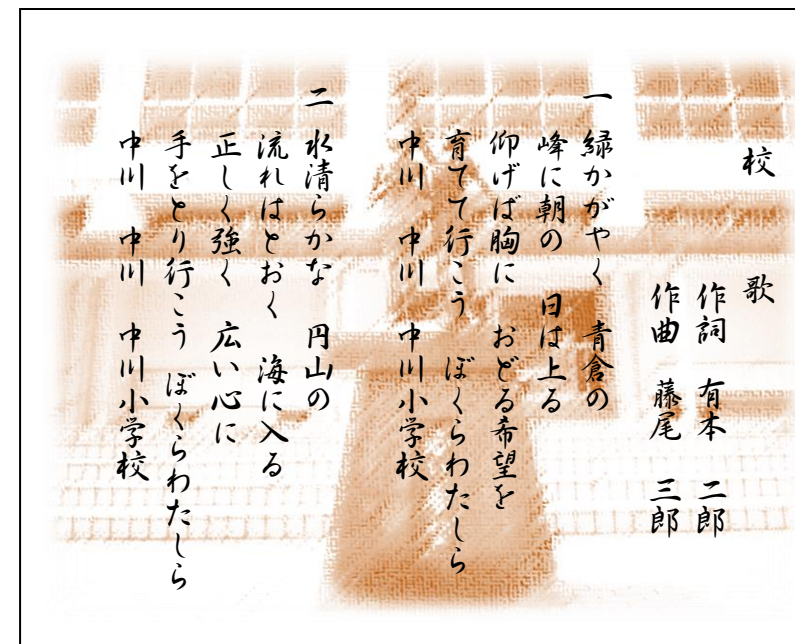 校歌
作詞 有本 二郎
作曲 藤尾 三郎
一 緑かがやく 青倉の
峰に朝の 日は上る
仰げば胸に おどる希望を
育てて行こう ぼくらわたしら
中川 中川 中川小学校
二 水清らかな 円山の
流れはとおく 海に入る
正しく強く 広い心に
手をとり行こう ぼくらわたしら
中川 中川 中川小学校